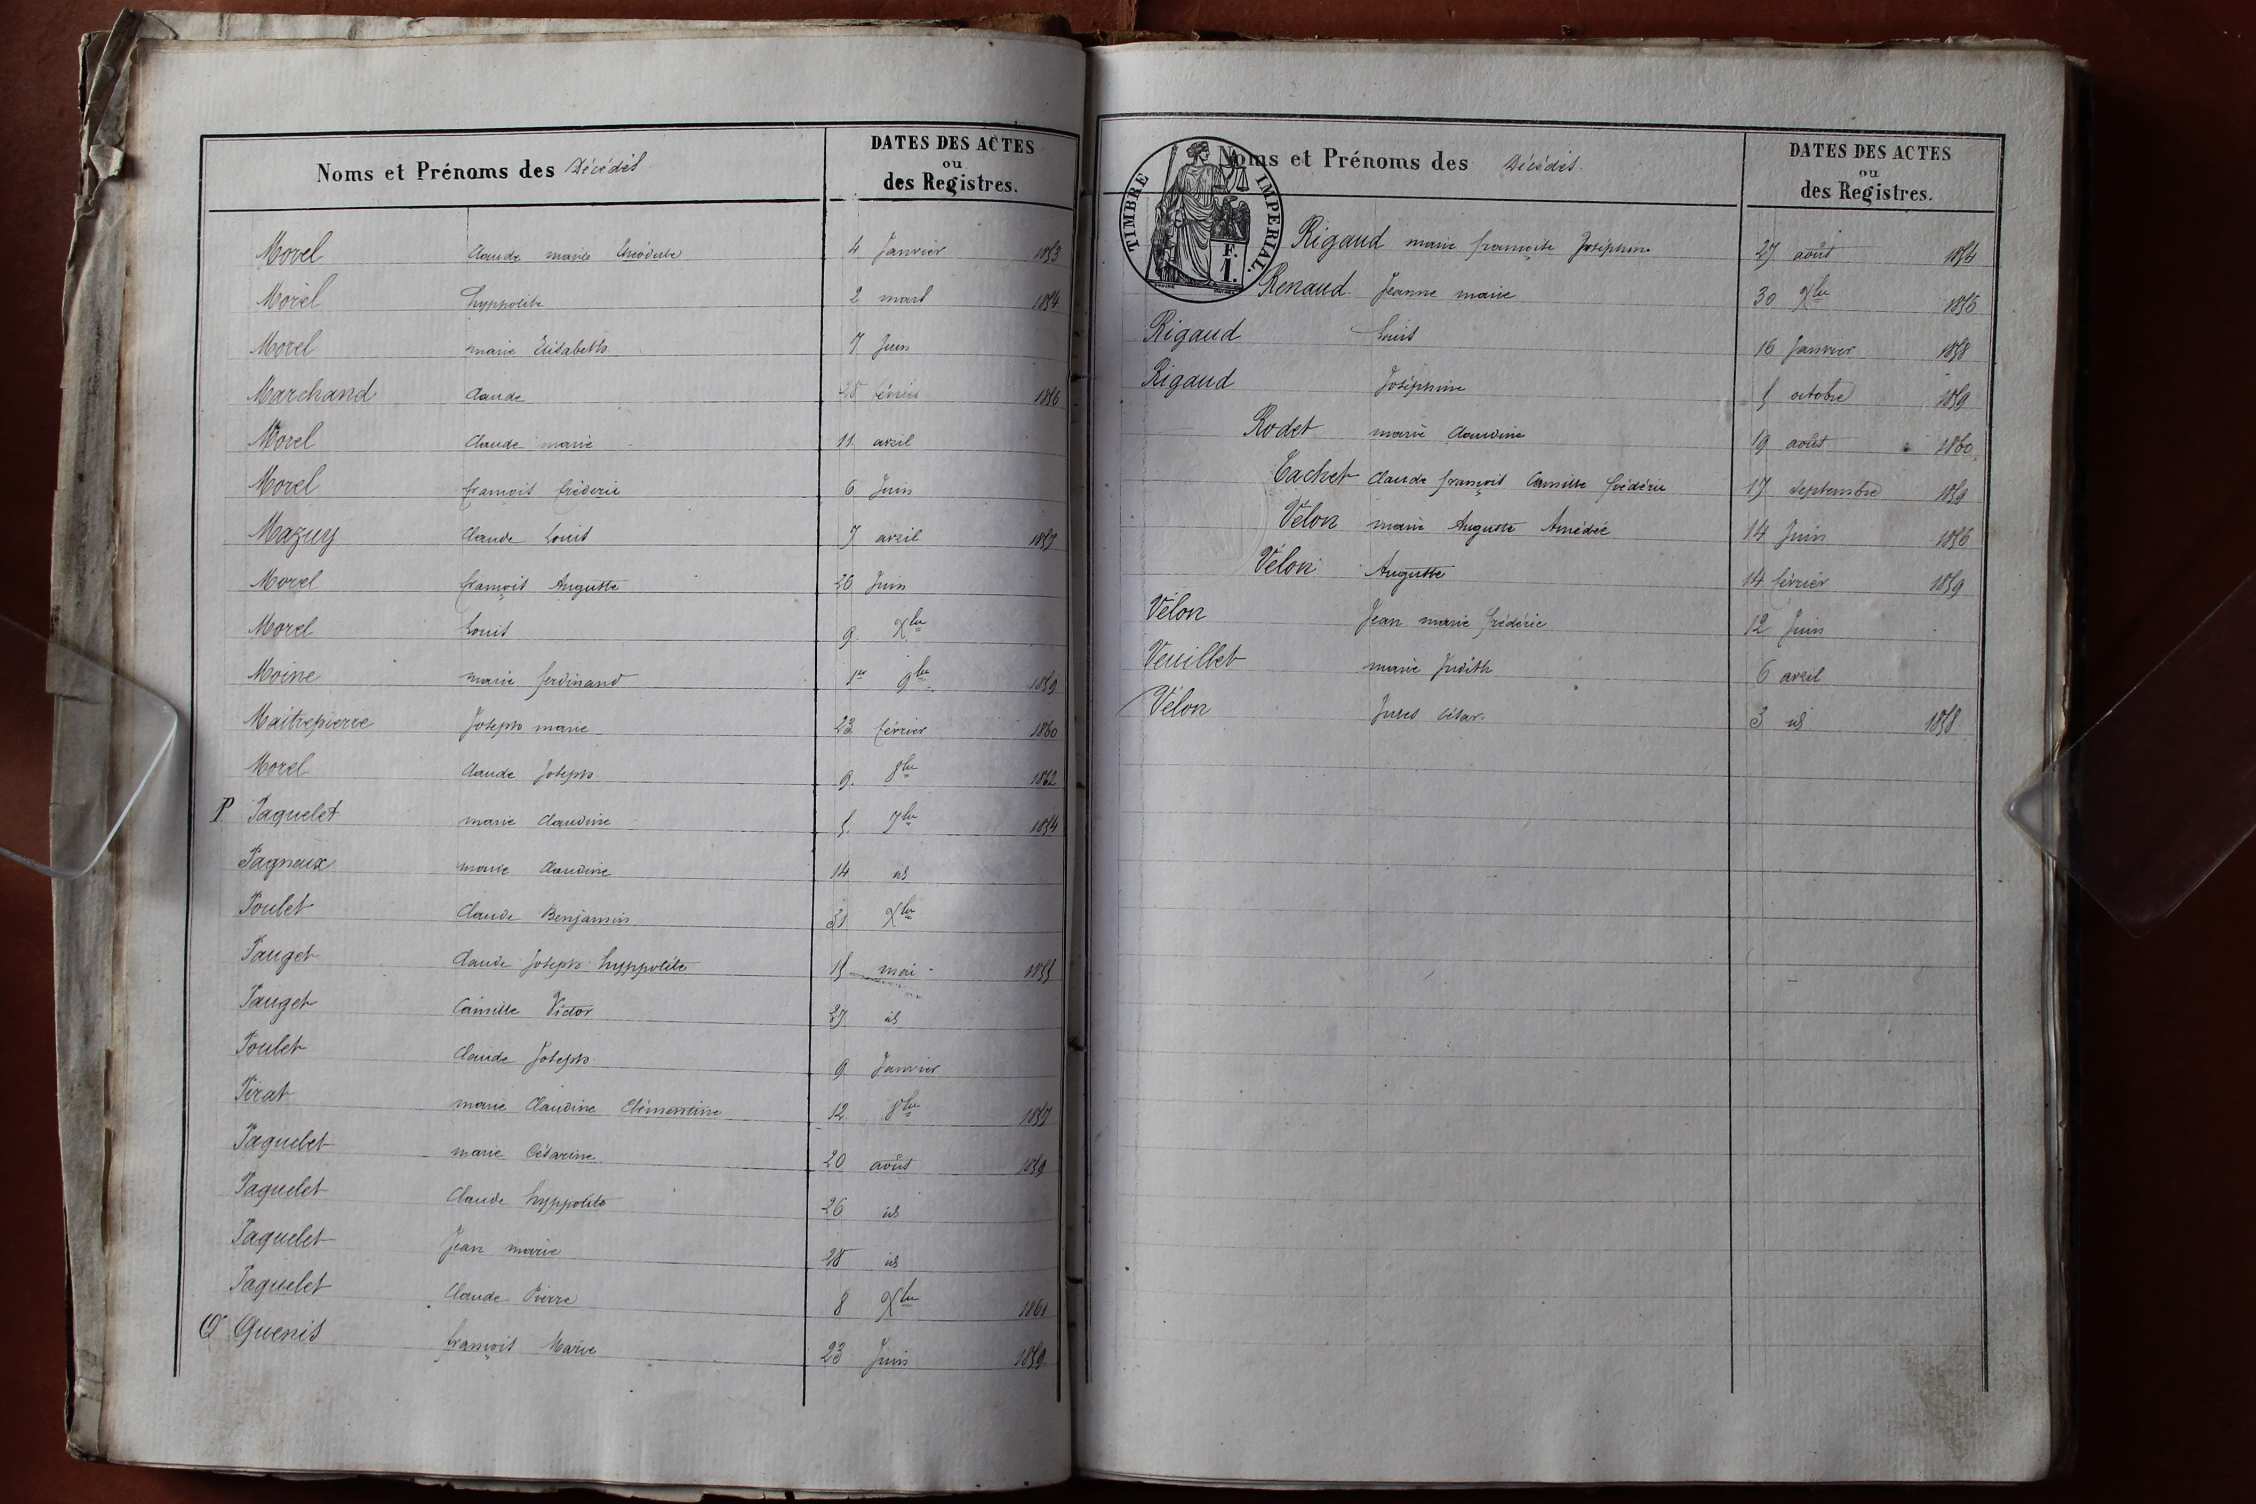 Noms et Prénoms des Décédés
DATES DES ACTES
ou
des Registres.
Morel Claude marie théodule 4 Janvier 1853
Morel hyppolite 2 mars 1854
Morel marie Elisabeth 7 Juin
Marchand Claude 28 février 1856
Morel Claude marie 11 avril
Morel françois fréderic 6 Juin
Mazuy Claude Louis 7 avril 1857
Morel françois Auguste 26 Juin
Morel Louis 9 Xbre
Moine marie ferdinand 1er 9bre 1859
Maitrepierre Joseph marie 23 février 1860
Morel Claude Joseph 9 8bre 1862
P Paquelet marie Claudine 5 7bre 1854
Pagneux marie Claudine 14 id
Poulet Claude Benjamin 31 Xbre
Pauget Claude Joseph hyppolite 15 mai 1855
Pauget Camille Victor 27 id
Poulet Claude Joseph 9 Janvier
Pirat marie Claudine Clémentine 12 8bre 1857
Paquelet marie Césarine 20 août 1859
Paquelet Claude hyppolite 26 id
Paquelet Jean marie 28 id
Paquelet Claude Pierre 8 Xbre 1861
Q Quenis françois Marie 23 Juin 1859
TIMBRE IMPERIAL.
F.
1.
Noms et Prénoms des Décédés.
DATES DES ACTES
ou
des Registres.
Rigaud marie françoise Joséphine 27 août 1854
Renaud Jeanne marie 30 Xbre 1856
Rigaud Louis 16 Janvier 1858
Rigaud Joséphine 5 octobre 1859
Rodet marie Claudine 19 août 1860
Tachet Claude françois Camille frédéric 17 septembre 1859
Vélon marie Auguste Amédée 14 Juin 1856
Vélon Auguste 14 février 1859
Vélon Jean marie frédéric 12 Juin
Veuillet marie Judith 6 avril
Vélon Jules César 3 id 1858